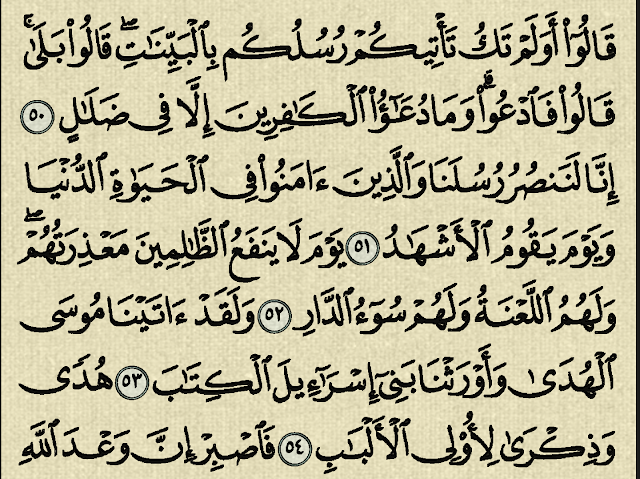 قَالُوٓا۟ أَوَلَمْ تَكُ تَأْتِيكُمْ رُسُلُكُم بِٱلْبَيِّنَٰتِ ۖ قَالُوا۟ بَلَىٰ ۚ
قَالُوا۟ فَٱدْعُوا۟ ۗ وَمَا دُعَٰٓؤُا۟ ٱلْكَٰفِرِينَ إِلَّا فِى ضَلَٰلٍ ٥٠
إِنَّا لَنَنصُرُ رُسُلَنَا وَٱلَّذِينَ ءَامَنُوا۟ فِى ٱلْحَيَوٰةِ ٱلدُّنْيَا
وَيَوْمَ يَقُومُ ٱلْأَشْهَٰدُ ٥١ يَوْمَ لَا يَنفَعُ ٱلظَّٰلِمِينَ مَعْذِرَتُهُمْ ۖ
وَلَهُمُ ٱللَّعْنَةُ وَلَهُمْ سُوٓءُ ٱلدَّارِ ٥٢ وَلَقَدْ ءَاتَيْنَا مُوسَى
ٱلْهُدَىٰ وَأَوْرَثْنَا بَنِىٓ إِسْرَٰٓءِيلَ ٱلْكِتَٰبَ ٥٣ هُدًى
وَذِكْرَىٰ لِأُو۟لِى ٱلْأَلْبَٰبِ ٥٤ فَٱصْبِرْ إِنَّ وَعْدَ ٱللَّهِ